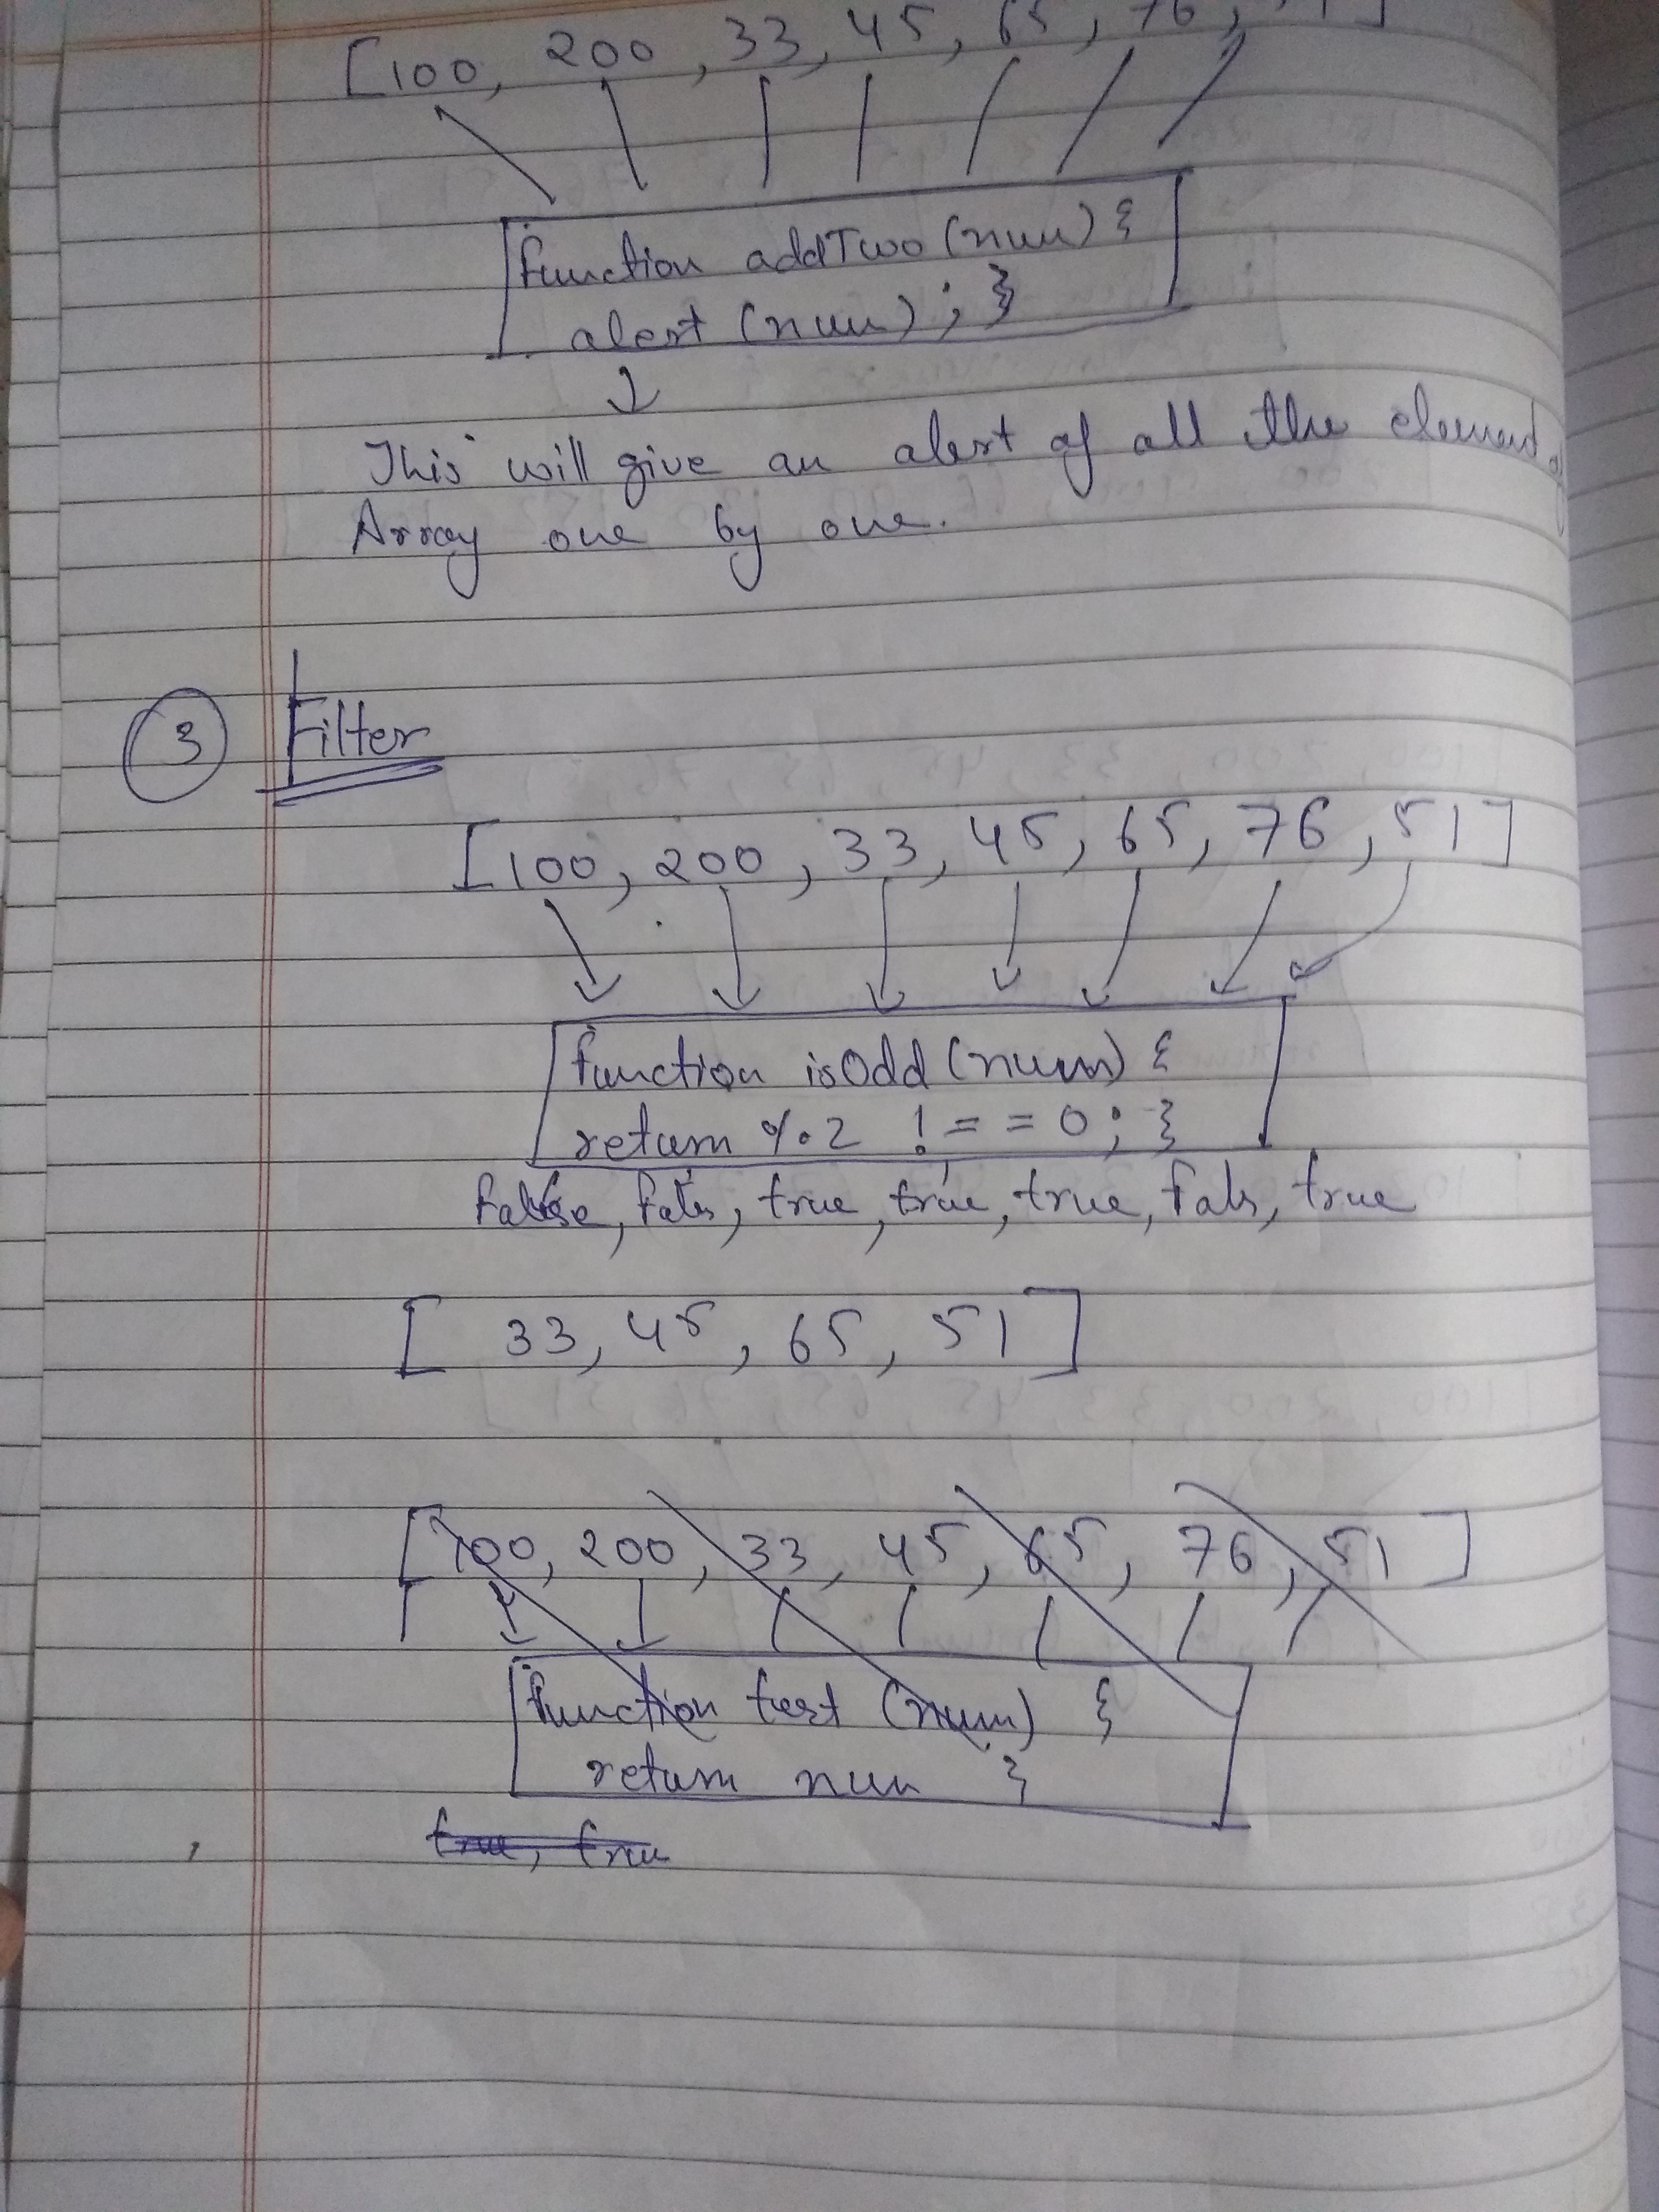 [100, 200, 33, 45, 65, 76,
function addTwo (num) {
alert (num) ; }
This will give an alert of all the element
Array one by one.
3 Filter
[100, 200, 33, 45, 65, 76, 51]
function isOdd (num) {
return %2 !== 0; }
false, fals, true, true, true, fals, true
[ 33, 45, 65, 51 ]
[100, 200, 33, 45, 65, 76, 51]
function test (num) {
return num }
true, true